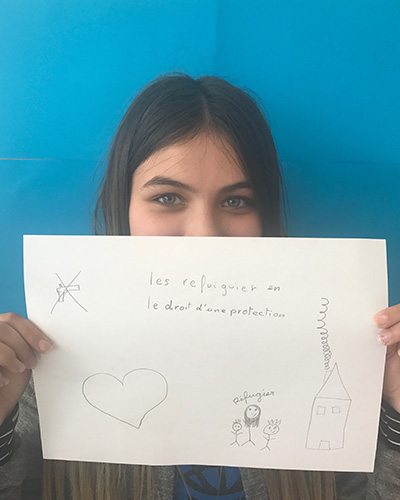 les refuiguier on
le droit d'une protection
réfugier